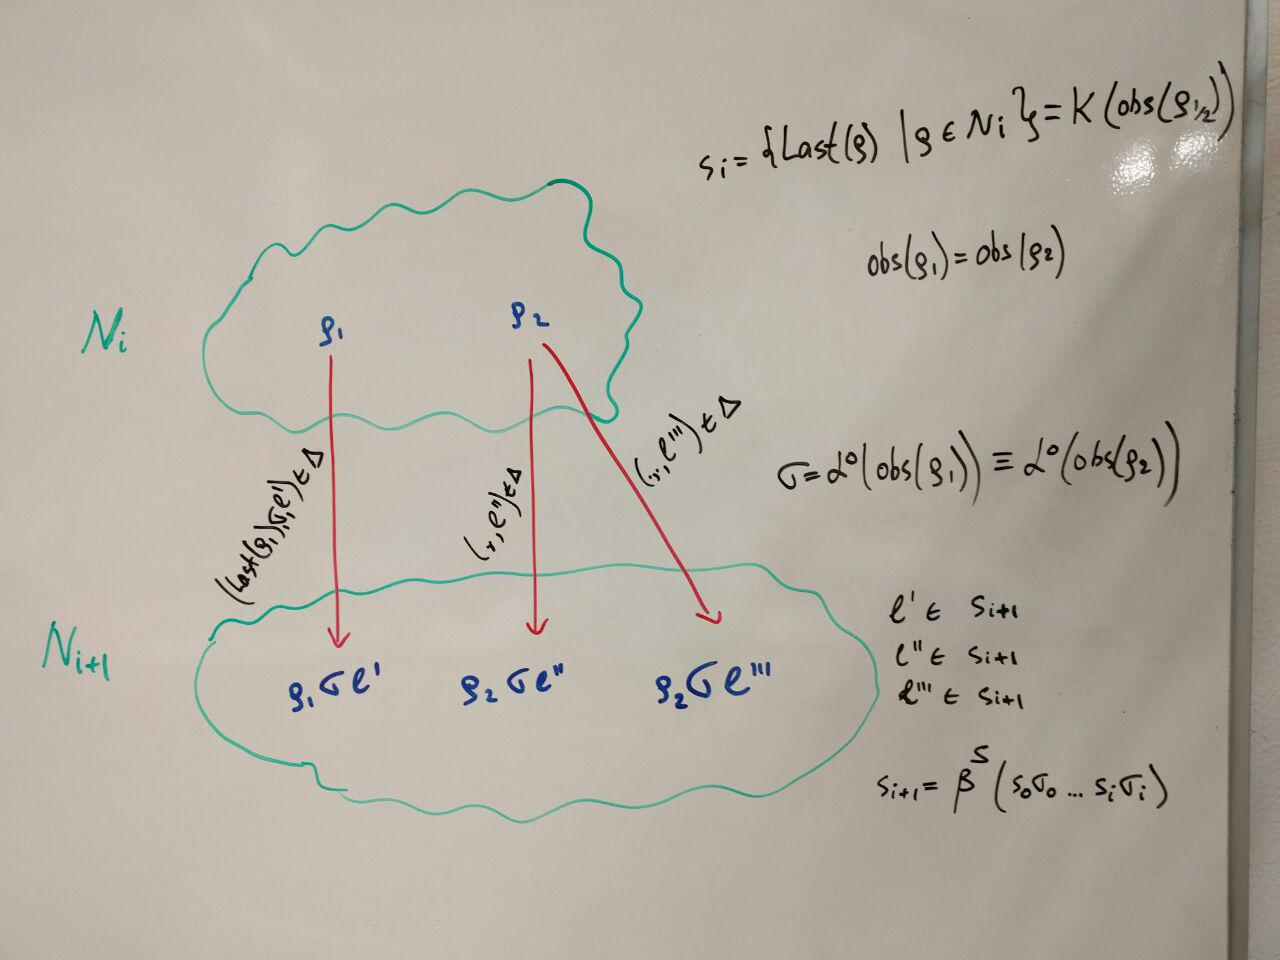 sᵢ = {Last(ρ) | ρ ∈ Nᵢ} = K(obs(ρ₁/₂))
obs(ρ₁) = obs(ρ₂)
Nᵢ
ρ₁ ρ₂
(Last(ρ₁), σ, ℓ') ∈ Δ
(〃, ℓ'') ∈ Δ
(〃, ℓ''') ∈ Δ
σ = α⁰(obs(ρ₁)) ≡ α⁰(obs(ρ₂))
Nᵢ₊₁
ρ₁σℓ' ρ₂σℓ'' ρ₂σℓ'''
ℓ' ∈ Sᵢ₊₁
ℓ'' ∈ Sᵢ₊₁
ℓ''' ∈ Sᵢ₊₁
Sᵢ₊₁ = βˢ(s₀σ₀ ... sᵢσᵢ)